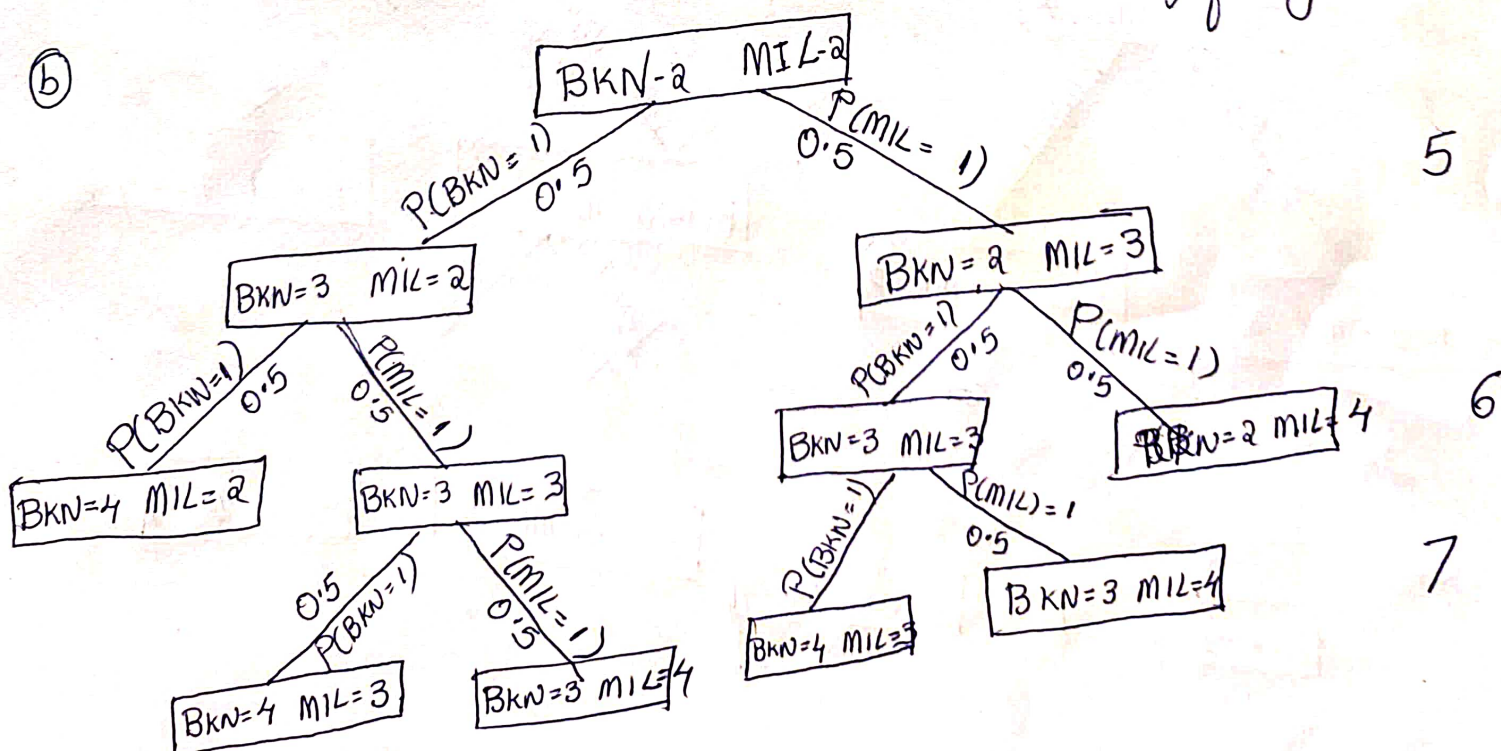 b
BKN-2 MIL-2
P(BKN=1)
0.5
P(MIL=1)
0.5
5
BKN=3 MIL=2
BKN=2 MIL=3
P(BKN=1)
0.5
P(MIL=1)
0.5
P(BKN=1)
0.5
P(MIL=1)
0.5
6
BKN=4 MIL=2
BKN=3 MIL=3
BKN=3 MIL=3
BKN=2 MIL=4
0.5
P(BKN=1)
P(MIL=1)
0.5
P(BKN=1)
P(MIL)=1
0.5
7
BKN=4 MIL=3
BKN=3 MIL=4
BKN=4 MIL=3
BKN=3 MIL=4